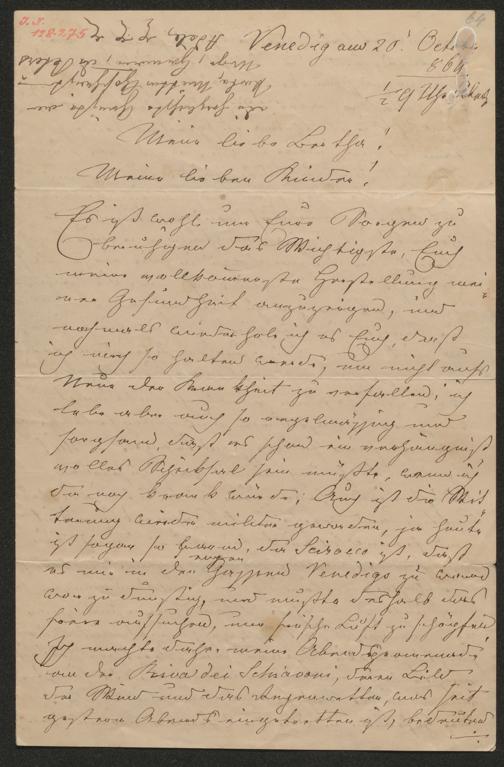 J. N.
128.275
64
Venedig am 20t. Octob.
864
½ 9 Uhr Abends
Meine liebe Bertha!
Meine lieben Kinder!
Es ist wohl um Eure Sorgen zu
beruhigen das Wichtigste, Euch
meine vollkommenste Herstellung mei-
ner Gesundheit anzuzeigen, und
nochmals wiederhole ich es Euch, dass
ich mich so halten werde, um nicht aufs
Neue der Krankheit zu verfallen; ich
lebe aber auch so regelmässig und
sorgsam, dass es schon ein verhängniss
volles Schicksal sein müsste, wenn ich
da noch krank würde; Auch ist die Wit
terung wieder milder geworden, ja heute
ist sogar so warm, da Scirocco ist, dass
es mir in den engen Gassen Venedigs zu warm
war zu dunstig, und musste deshalb das
freie aufsuchen, um frische Luft zu schöpfen.
Ich machte daher meine Abendpromenade
an der Riva dei Schiavoni, deren Bild
der Wind und das Regenwetter, was seit
gestern Abends eingetretten ist, bedeutend